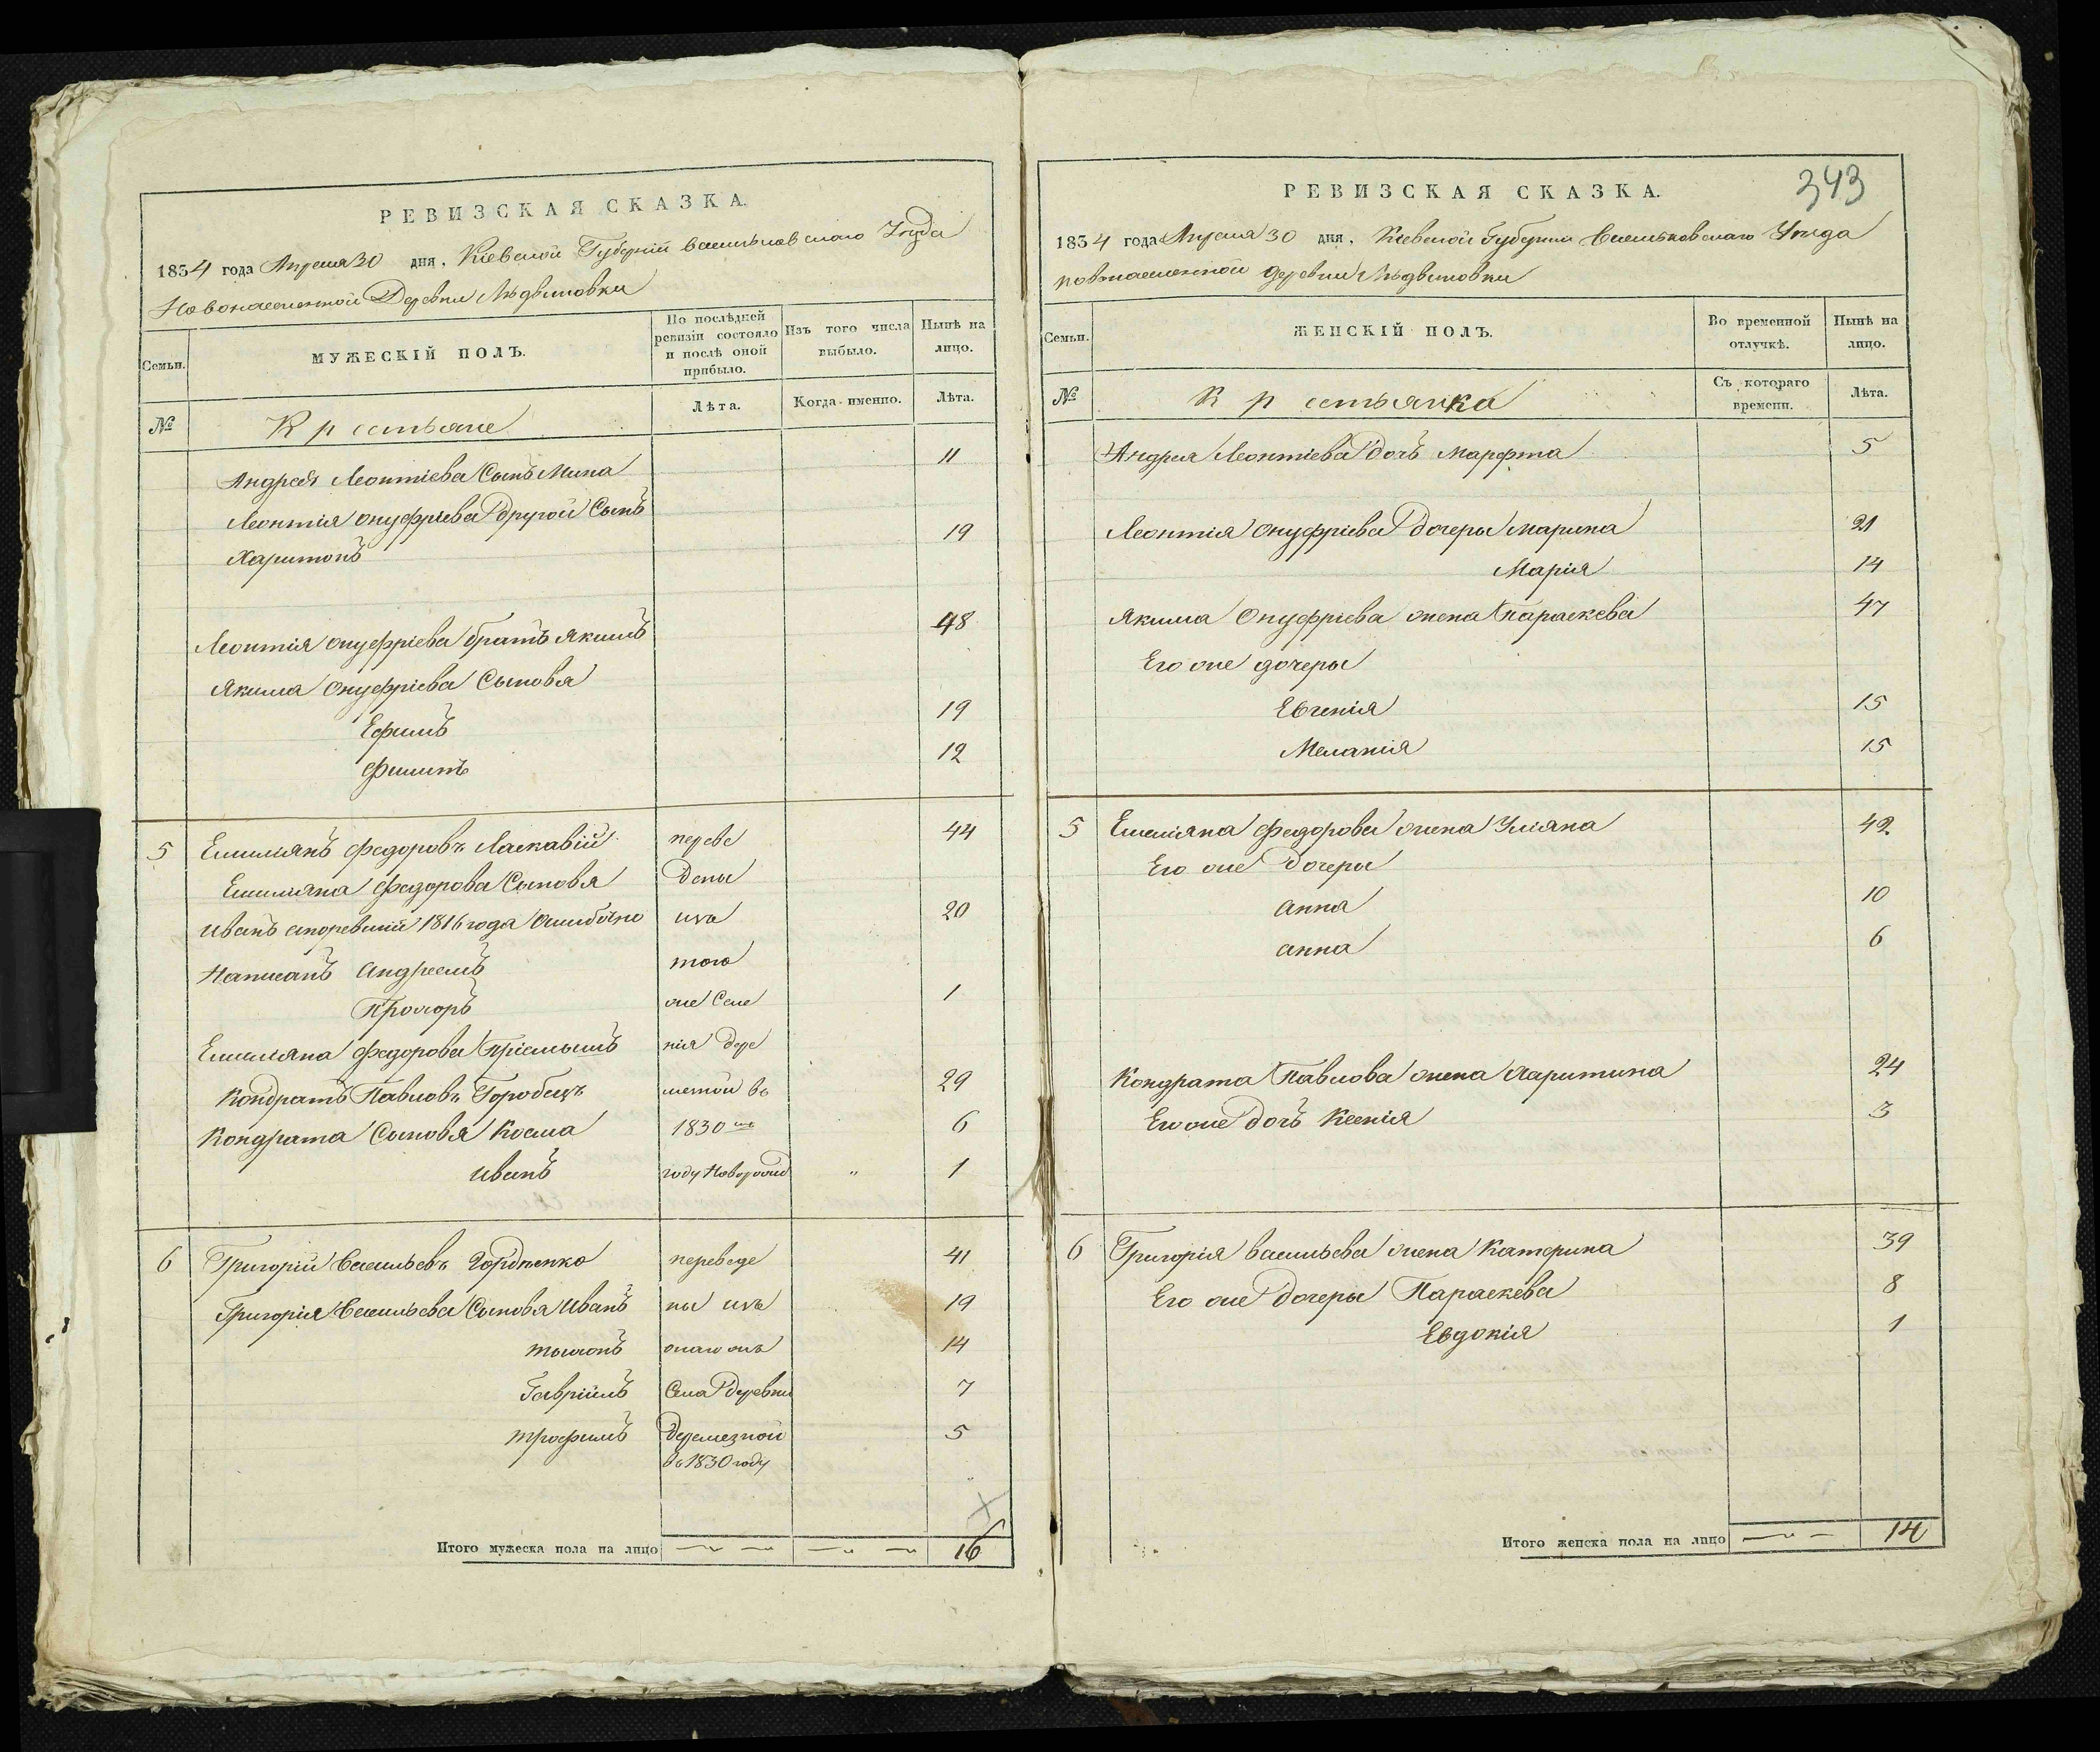 РЕВИЗСКАЯ СКАЗКА.
1834 года Апреля 30 дня. Кіевской Губерніи Васильковскаго Уѣзда
Новонаселенной Деревни Людвиновки
Семьи.
МУЖЕСКІЙ ПОЛЪ.
По послѣдней ревизіи состояло и послѣ оной прибыло.
Изъ того числа выбыло.
Нынѣ на лицо.
№
Крестьяне
Лѣта.
Когда именно.
Лѣта.
Андрея Леонтіева Сынъ Мина 11
Леонтія Онуфріева другой Сынъ
Харитонъ 19
Леонтія Онуфріева братъ Якимъ 48
Якима Онуфріева Сыновя
Ефимъ 19
Филипъ 12
5 Емиліянъ Федоровъ Ласкавій переве 44
Емиліяна Федорова Сыновя дены
Иванъ вторевизіи 1816 года Ошибочно изъ 20
Написанъ Андреемъ того
Прохоръ же Селе 1
Емиліяна Федорова Пріемышъ нія дере
Кондратъ Павловъ Горобецъ мезной въ 29
Кондрата Сыновя Косма 1830мъ 6
Иванъ году Новорожд " 1
6 Григорій Васильевъ Гордіенко переведе 41
Григорія Васильева Сыновя Иванъ ны изъ 19
Тихонъ 14
Гавріилъ Села Деревни 7
Трофимъ Деремезной 5
въ 1830 году
Итого мужеска пола на лицо 16
343
РЕВИЗСКАЯ СКАЗКА.
1834 года Апреля 30 дня. Кіевской Губерніи Васильковскаго Уѣзда
новонаселенной деревни Людвиновки
Семьи.
ЖЕНСКІЙ ПОЛЪ.
Во временной отлучкѣ.
Нынѣ на лицо.
№
Крестьянка
Съ котораго времени.
Лѣта.
Андрея Леонтіева дочъ Марфта 5
Леонтія Онуфріева дочеры Марина 21
Марія 14
Якима Онуфріева жена Параскева 47
Его же дочеры
Евгенія 15
Меланія 15
5 Емиліяна Федорова жена Уліяна 42
Его же Дочеры
Анна 10
Анна 6
Кондрата Павлова жена Харитина 24
Его же дочъ Ксенія 3
6 Григорія Васильева жена Катерина 39
Его же Дочеры Параскева 8
Евдокія 1
Итого женска пола на лицо 14